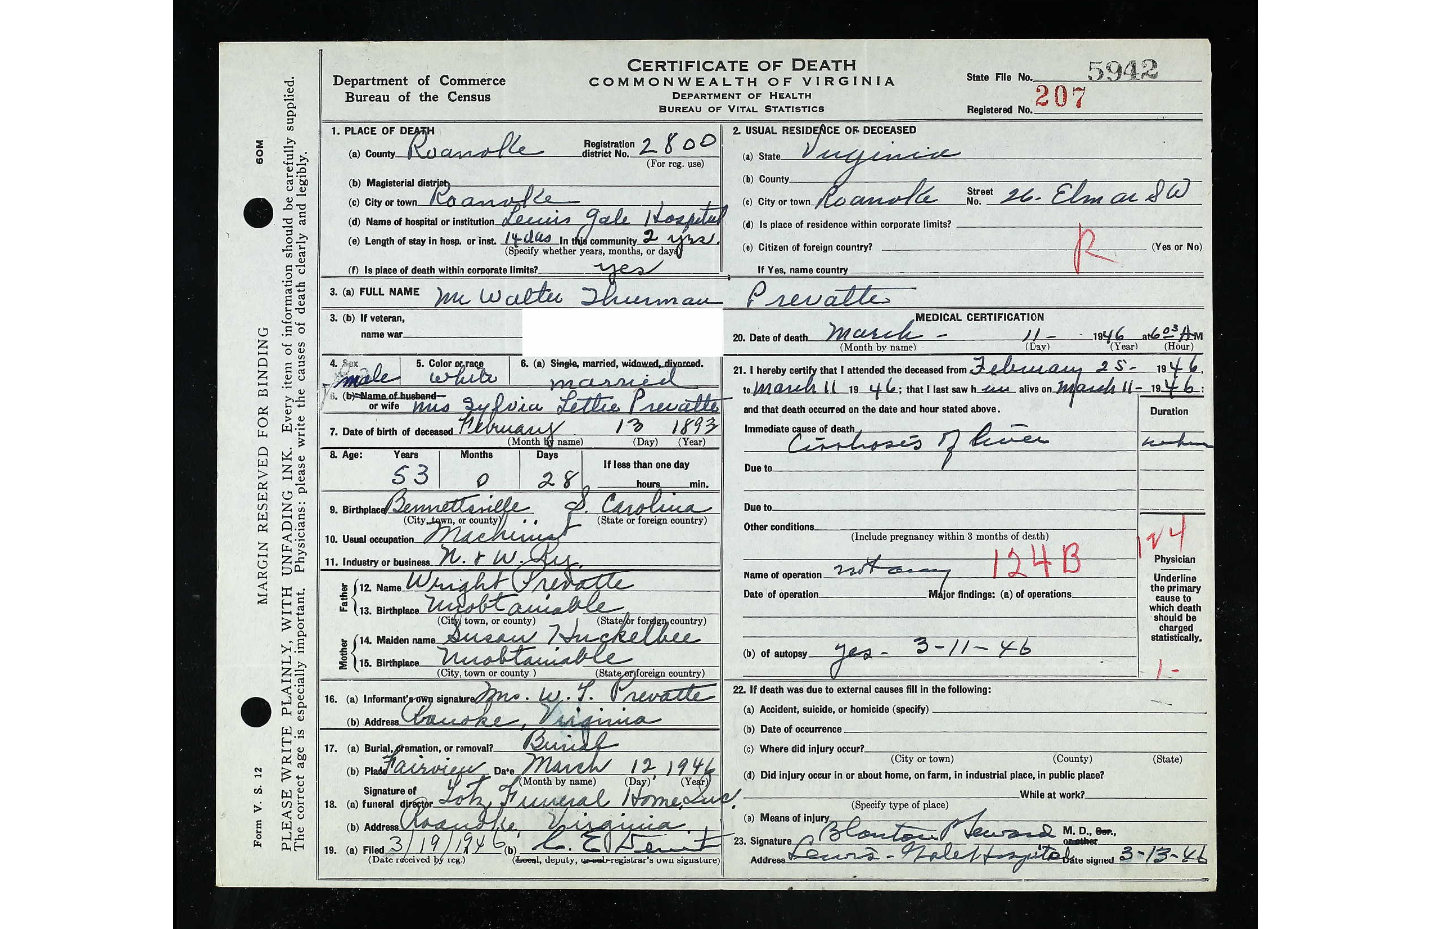 CERTIFICATE OF DEATH
COMMONWEALTH OF VIRGINIA
DEPARTMENT OF HEALTH
BUREAU OF VITAL STATISTICS
Department of Commerce
Bureau of the Census
State File No. 5942
Registered No. 207
MARGIN RESERVED FOR BINDING
60M
Form V. S. 12
PLEASE WRITE PLAINLY, WITH UNFADING INK. Every item of information should be carefully supplied.
The correct age is especially important. Physicians: please write the causes of death clearly and legibly.
1. PLACE OF DEATH
(a) County Roanoke Registration district No. 2800
(For reg. use)
(b) Magisterial district
(c) City or town Roanoke
(d) Name of hospital or institution Lewis Gale Hospital
(e) Length of stay in hosp. or inst. 14 das In this community 2 yrs.
(Specify whether years, months, or days)
(f) Is place of death within corporate limits? yes
2. USUAL RESIDENCE OF DECEASED
(a) State Virginia
(b) County
(c) City or town Roanoke Street No. 26 - Elm av SW
(d) Is place of residence within corporate limits?
(e) Citizen of foreign country? R (Yes or No)
If Yes, name country
3. (a) FULL NAME Mr Walter Thurman Prevatte
3. (b) If veteran,
name war
4. Sex male
5. Color or race white
6. (a) Single, married, widowed, divorced.
married
6. (b) Name of husband
or wife Mrs Sylvia Lettie Prevatte
7. Date of birth of deceased February 13 1893
(Month by name) (Day) (Year)
8. Age: Years 53 Months 0 Days 28 If less than one day
hours min.
9. Birthplace Bennettsville S. Carolina
(City, town, or county) (State or foreign country)
10. Usual occupation Machinist
11. Industry or business N. & W. Ry.
Father
12. Name Wright Prevatte
13. Birthplace Unobtainable
(City, town, or county) (State or foreign country)
Mother
14. Maiden name Susan Huckelbee
15. Birthplace Unobtainable
(City, town or county) (State or foreign country)
16. (a) Informant's own signature Mrs. W. T. Prevatte
(b) Address Roanoke, Virginia
17. (a) Burial, cremation, or removal? Burial
(b) Place Fairview Date March 12, 1946
(Month by name) (Day) (Year)
Signature of
18. (a) funeral director Lotz Funeral Home, Inc.
(b) Address Roanoke, Virginia.
19. (a) Filed 3/19/1946 (b)
(Date received by reg.) (Local, deputy, or sub-registrar's own signature)
MEDICAL CERTIFICATION
20. Date of death March - 11 - 1946 at 6:03 A M
(Month by name) (Day) (Year) (Hour)
21. I hereby certify that I attended the deceased from February 25 - 1946,
to March 11 1946; that I last saw him alive on March 11 - 1946;
and that death occurred on the date and hour stated above.
Duration
Immediate cause of death
Cirrhosis of liver
Due to
Due to
Other conditions
(Include pregnancy within 3 months of death)
Name of operation not any 124B
Date of operation Major findings: (a) of operations
(b) of autopsy yes - 3-11-46
124
Physician
Underline
the primary
cause to
which death
should be
charged
statistically.
1-
22. If death was due to external causes fill in the following:
(a) Accident, suicide, or homicide (specify)
(b) Date of occurrence
(c) Where did injury occur?
(City or town) (County) (State)
(d) Did injury occur in or about home, on farm, in industrial place, in public place?
While at work?
(Specify type of place)
(e) Means of injury
23. Signature Blanton P Seward M. D., Cor.,
or other
Address Lewis-Gale Hospital Date signed 3-13-46